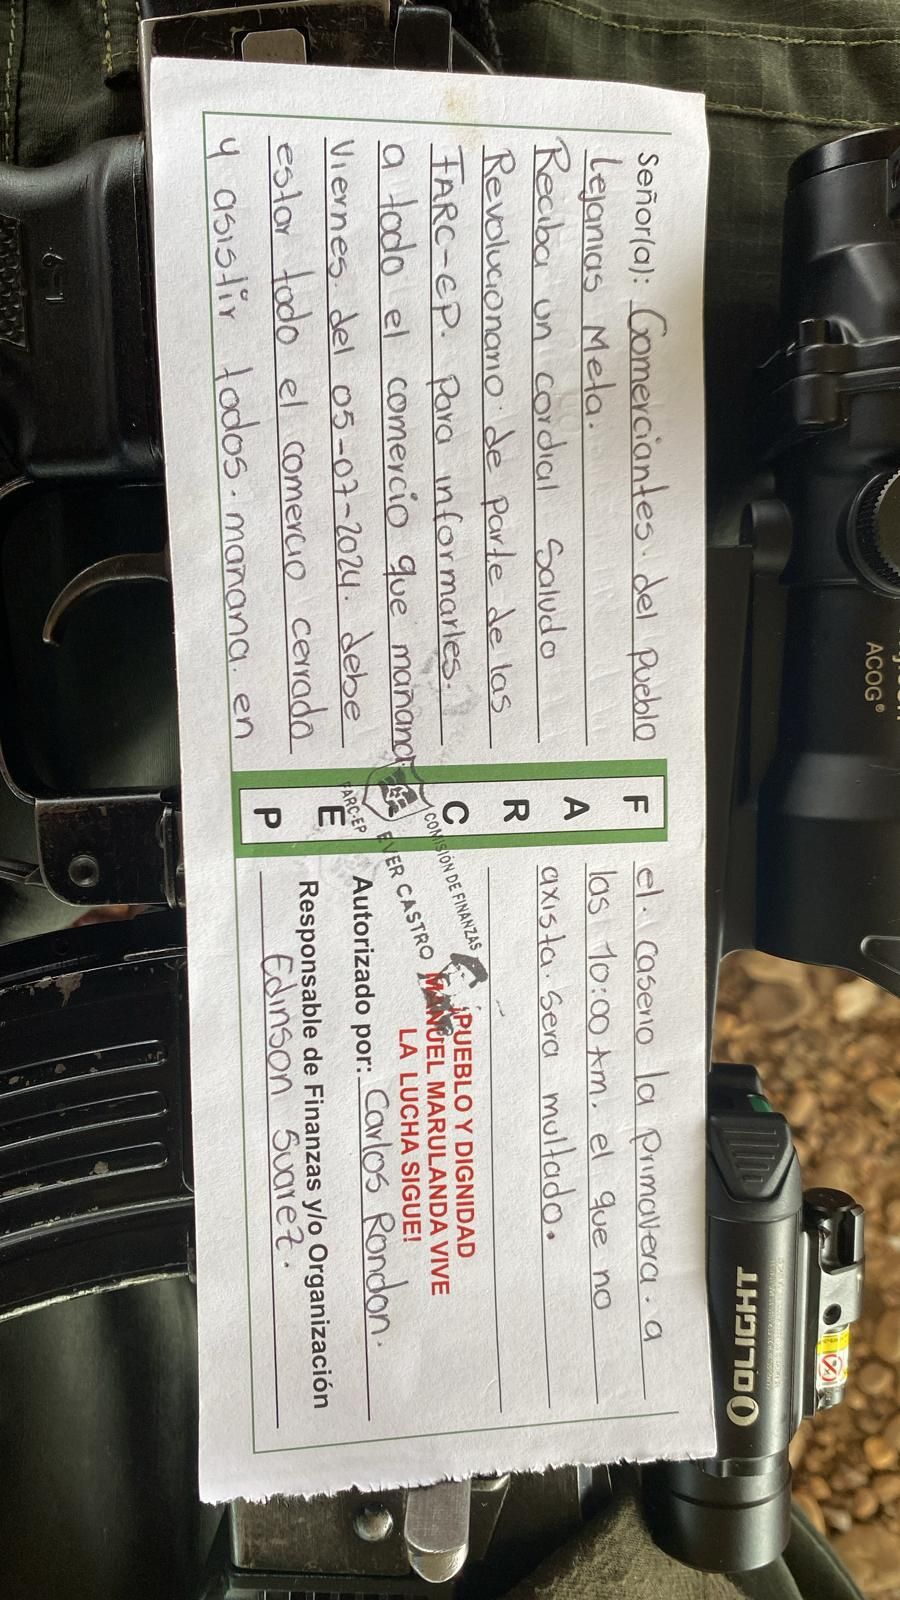 Señor(a): Comerciantes. del pueblo
Lejanias Meta.
Reciba un cordial Saludo
Revolucionario. de parte de las
FARC-EP. para informarles.
a todo el comercio que mañana.
Viernes. del 05-07-2024. debe
estar todo el comercio cerrado
y asistir todos. mañana. en
F
A
R
C
E
P
el. caserio la primavera. a
las 10:00 Am. el que no
axista. Sera multado.
COMISIÓN DE FINANZAS
EVER CASTRO
FARC-EP
¡PUEBLO Y DIGNIDAD
MANUEL MARULANDA VIVE
LA LUCHA SIGUE!
Autorizado por: Carlos Rondon.
Responsable de Finanzas y/o Organización
Edinson Suarez.
ACOG®
OLIGHT